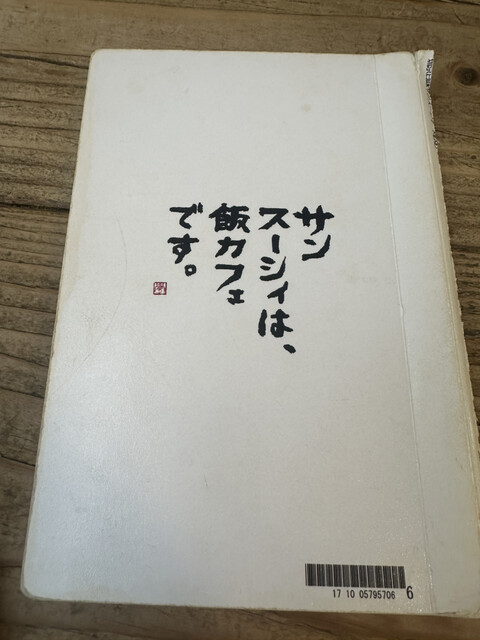 サン
スーシィは、
飯カフェ
です。
17 10 05795706 6